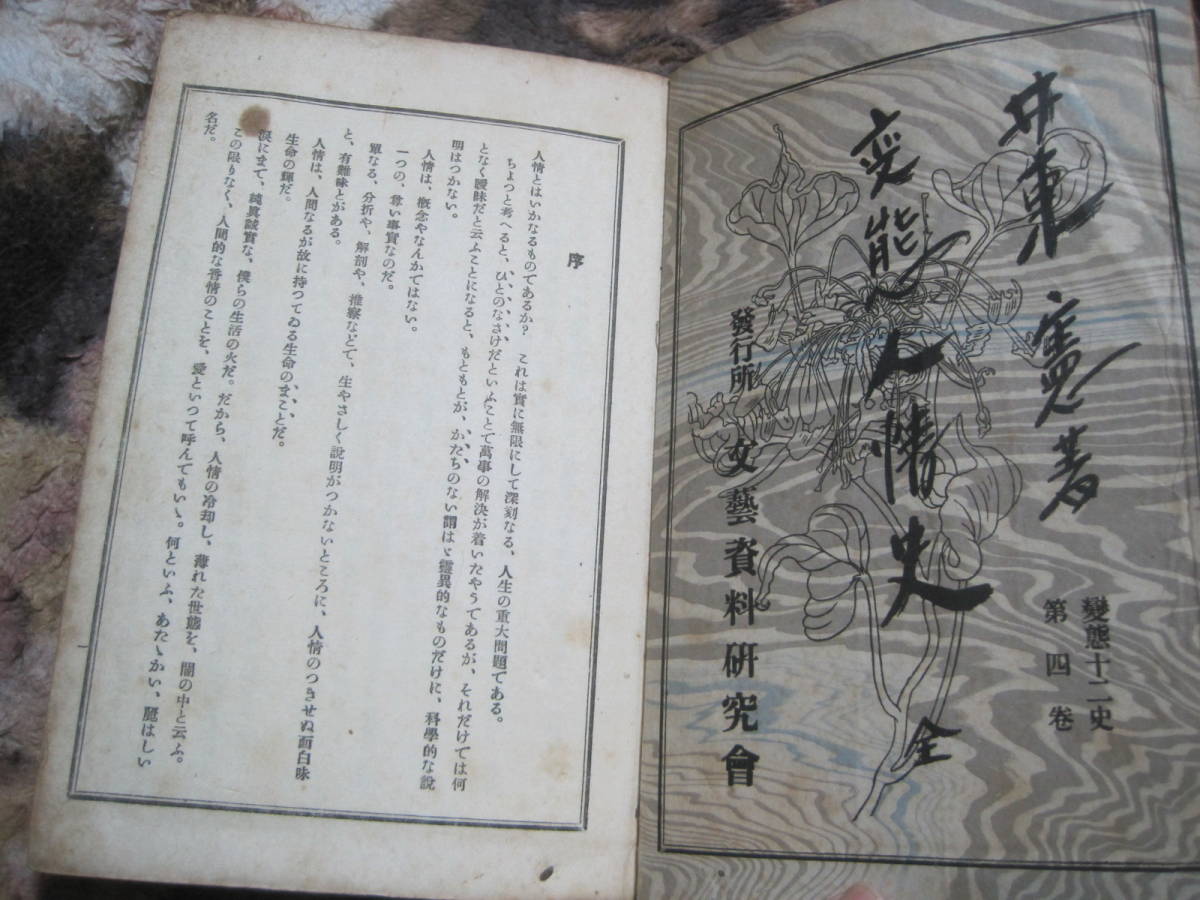 井東憲著
變態十二史
第四卷
変態人情史 全
發行所 文藝資料研究會
序
人情とはいかなるものであるか？　これは實に無限にして深刻なる、人生の重大問題である。
ちょつと考へると、ひとのなさけだといふことで萬事の解決が着いたやうであるが、それだけでは何
となく曖昧だと云ふことになると、もともとが、かたちのない謂はゞ靈異的なものだけに、科學的な說
明はつかない。
人情は、概念やなんかではない。
一つの、尊い事實なのだ。
單なる、分折や、解剖や、推察などで、生やさしく說明がつかないところに、人情のつきせぬ面白味
と、有難味とがある。
人情は、人間なるが故に持つてゐる生命のまことだ。
生命の輝だ。
淚にまで、純眞誠實な、僕らの生活の火だ。だから、人情の冷却し、薄れた世態を、闇の中と云ふ。
この限りなく、人間的な善情のことを、愛といつて呼んでもいゝ。何といふ、あたゝかい、麗はしい
名だ。